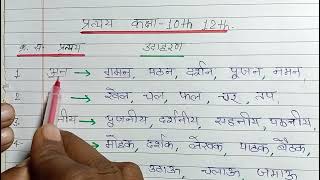 प्रत्यय कक्षा-10th 12th.
क्र. स. प्रत्यय उदाहरण
1. अन → गमन, पठन, दर्शन, पूजन, नमन
2. अ → खेल, चल, फल, चर, तप
नीय → पूजनीय, दर्शनीय, सहनीय, पठनीय
4- → मोहक, दर्शक, लेखक, पाठक, बैठक
उठाऊ, चलाऊ, जमाऊ